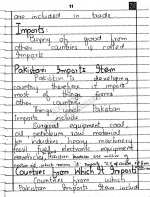 11
are included in trade
Imports:
Buying of good from
other countries is called
Imports
Pakistan Imports Item
Pakistan is developing
country therefore it import
most of things from
other countries
Things which Pakistan
Imports include
Surgical equipment, coal
oil petroleum, raw material
for industries heavy machinery
fossil fuel, electronic equipment
Pakistan
Countries From Which It Imports
Countries from which
Pakistan Imports Item include